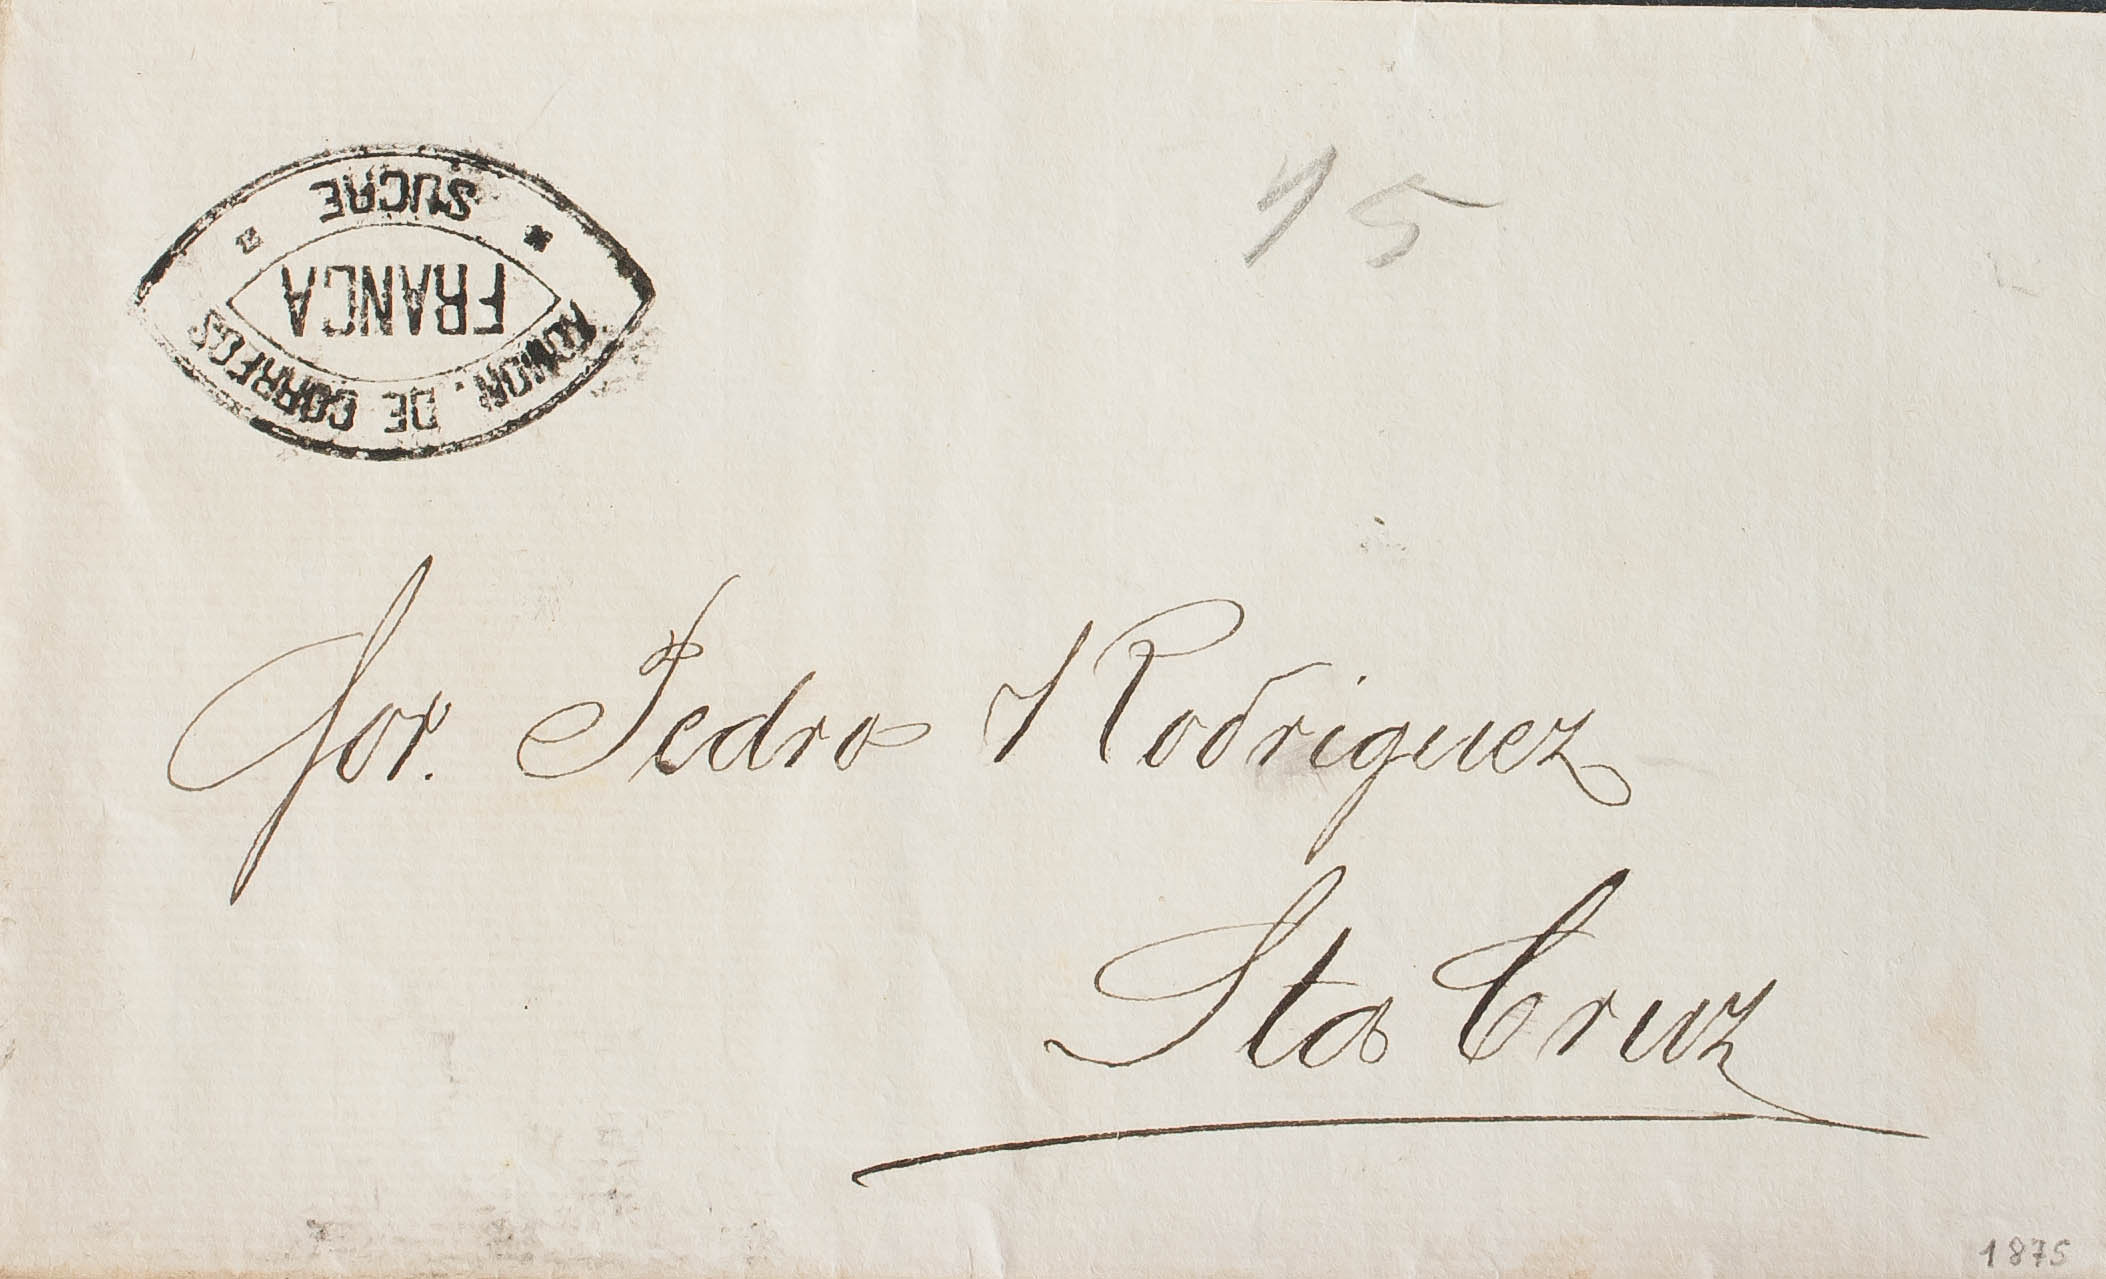 ADMON. DE CORREOS
FRANCA
SUCRE
15
Sor. Pedro Rodriguez
Sta Cruz
1875